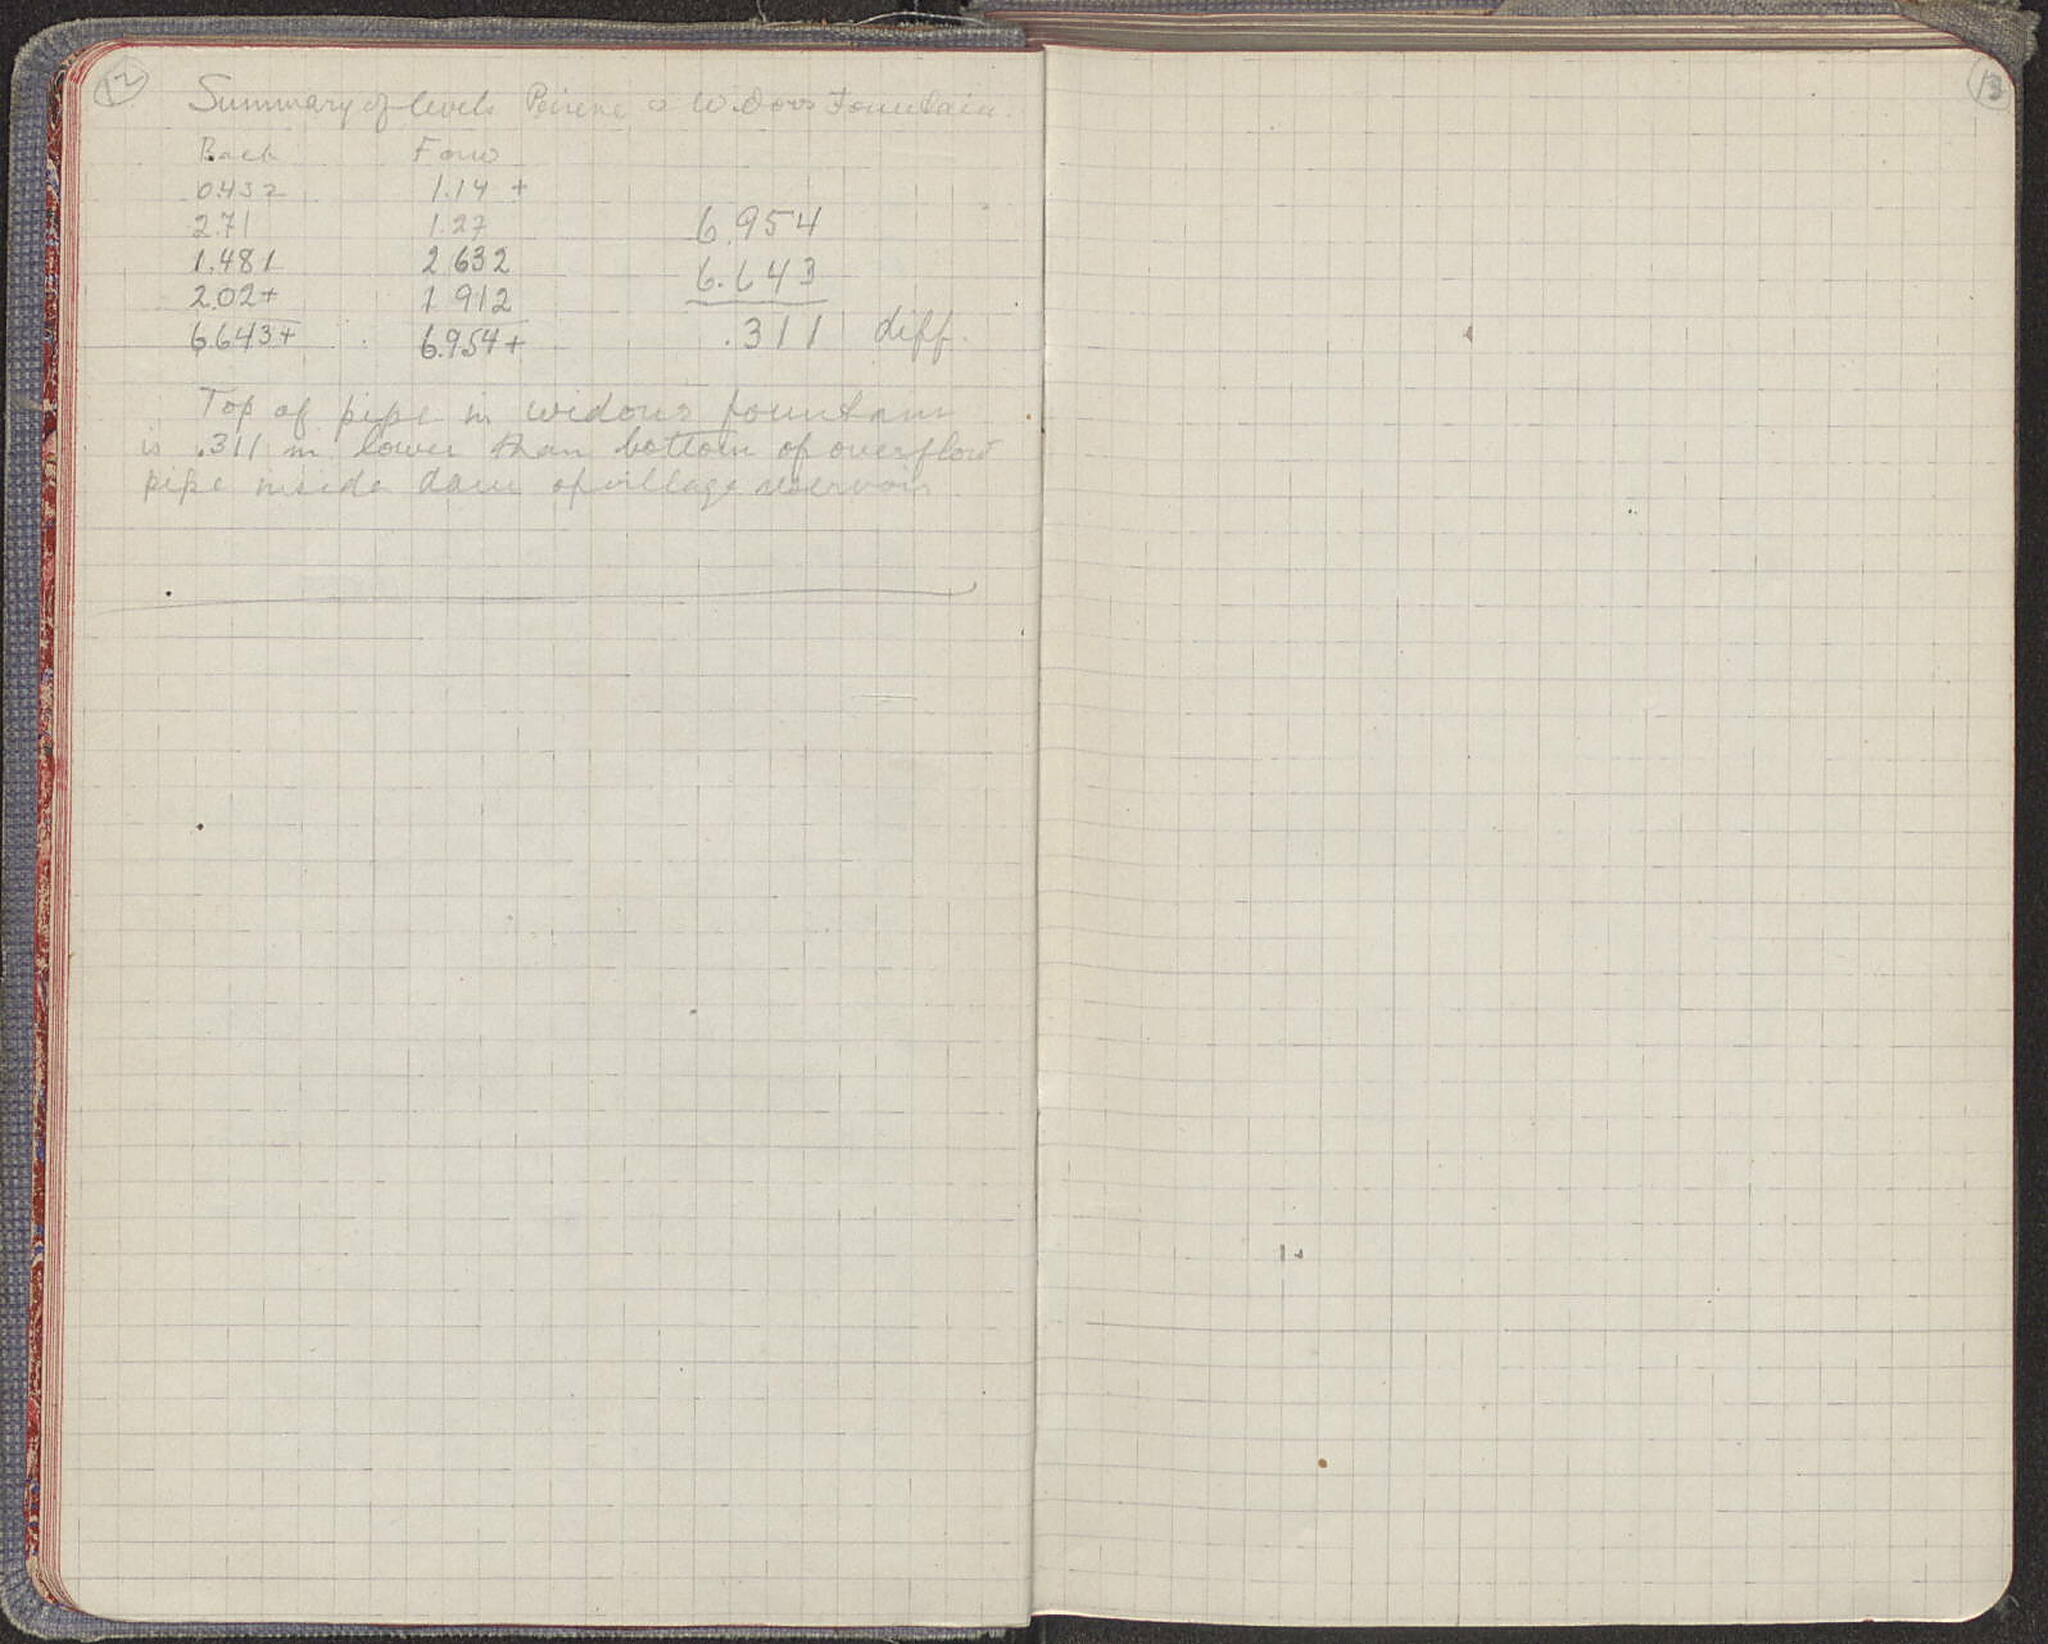 12
Summary of levels Peirene & Widows Fountain.
Back Forw
0.432 1.14 +
2.71 1.27 6.954
1.481 2 632 6.643
2.02+ 1 912 .311 diff.
6.643+ 6.954+
Top of pipe in widows fountain
is .311 m lower than bottom of overflow
pipe inside dam of village reservoir
13